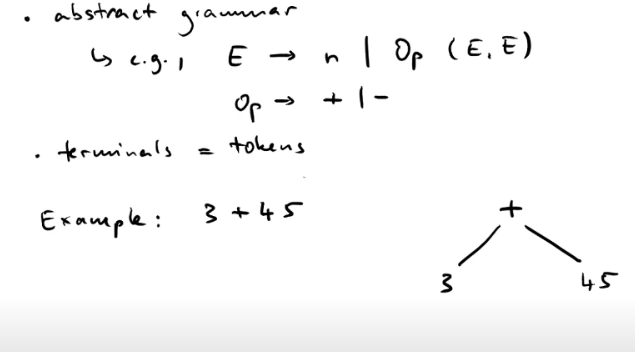 • abstract grammar
↳ e.g., E → n | Op (E, E)
Op → + | -
• terminals = tokens
Example: 3 + 45
+
3 45